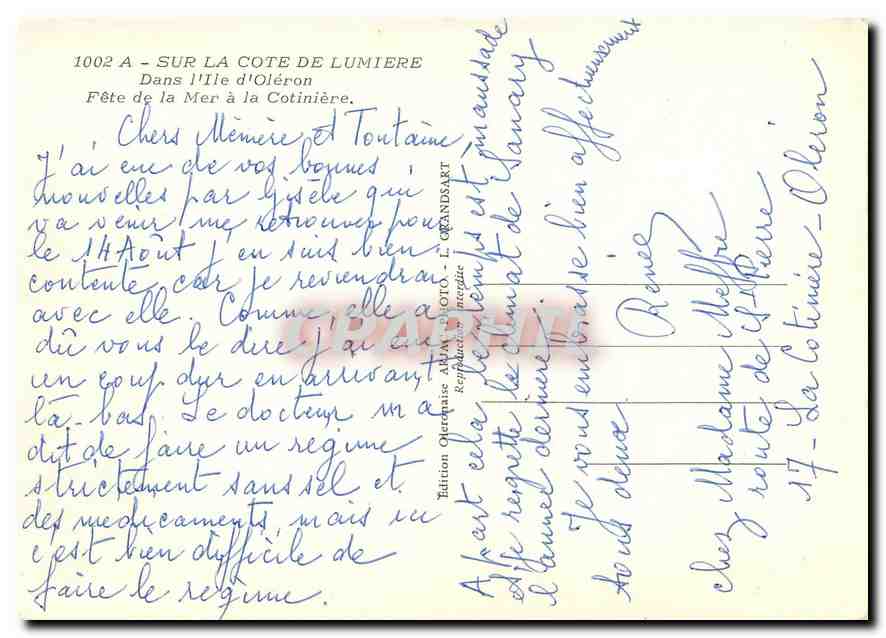 1002 A - SUR LA COTE DE LUMIERE
Dans l'Ile d'Oléron
Fête de la Mer à la Cotinière.
Chers Mémère et Tontaine,
J'ai eue de vos bonnes
nouvelles par Gisèle qui
va venir me retrouver pour
le 14 Août j'en suis bien
contente car je reviendrai
avec elle. Comme elle a
dû vous le dire j'ai eu
un coup dur en arrivant
là-bas. Le docteur m'a
dit de faire un régime
strictement sans sel et
des medicaments, mais ici
c'est bien difficile de
faire le régime.
Edition Oleronaise ARJAC PHOTO. - L. GRANDSART
Reproduction interdite
A part cela le temps est maussade
et je regrette le climat de Sanary
l'année dernière.
Je vous embrasse bien affectueusement
tous deux.
Renée
chez Madame Meffre
route de St Pierre
17 - La Cotinière - Oleron
CPAPHIL